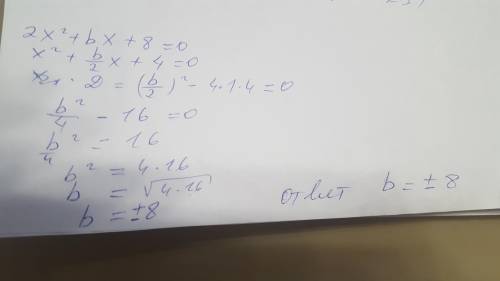 2x² + bx + 8 = 0
x² + b/2 x + 4 = 0
D = (b/2)² - 4·1·4 = 0
b²/4 - 16 = 0
b²/4 = 16
b² = 4·16
b = √4·16
b = ±8
ответ b = ±8